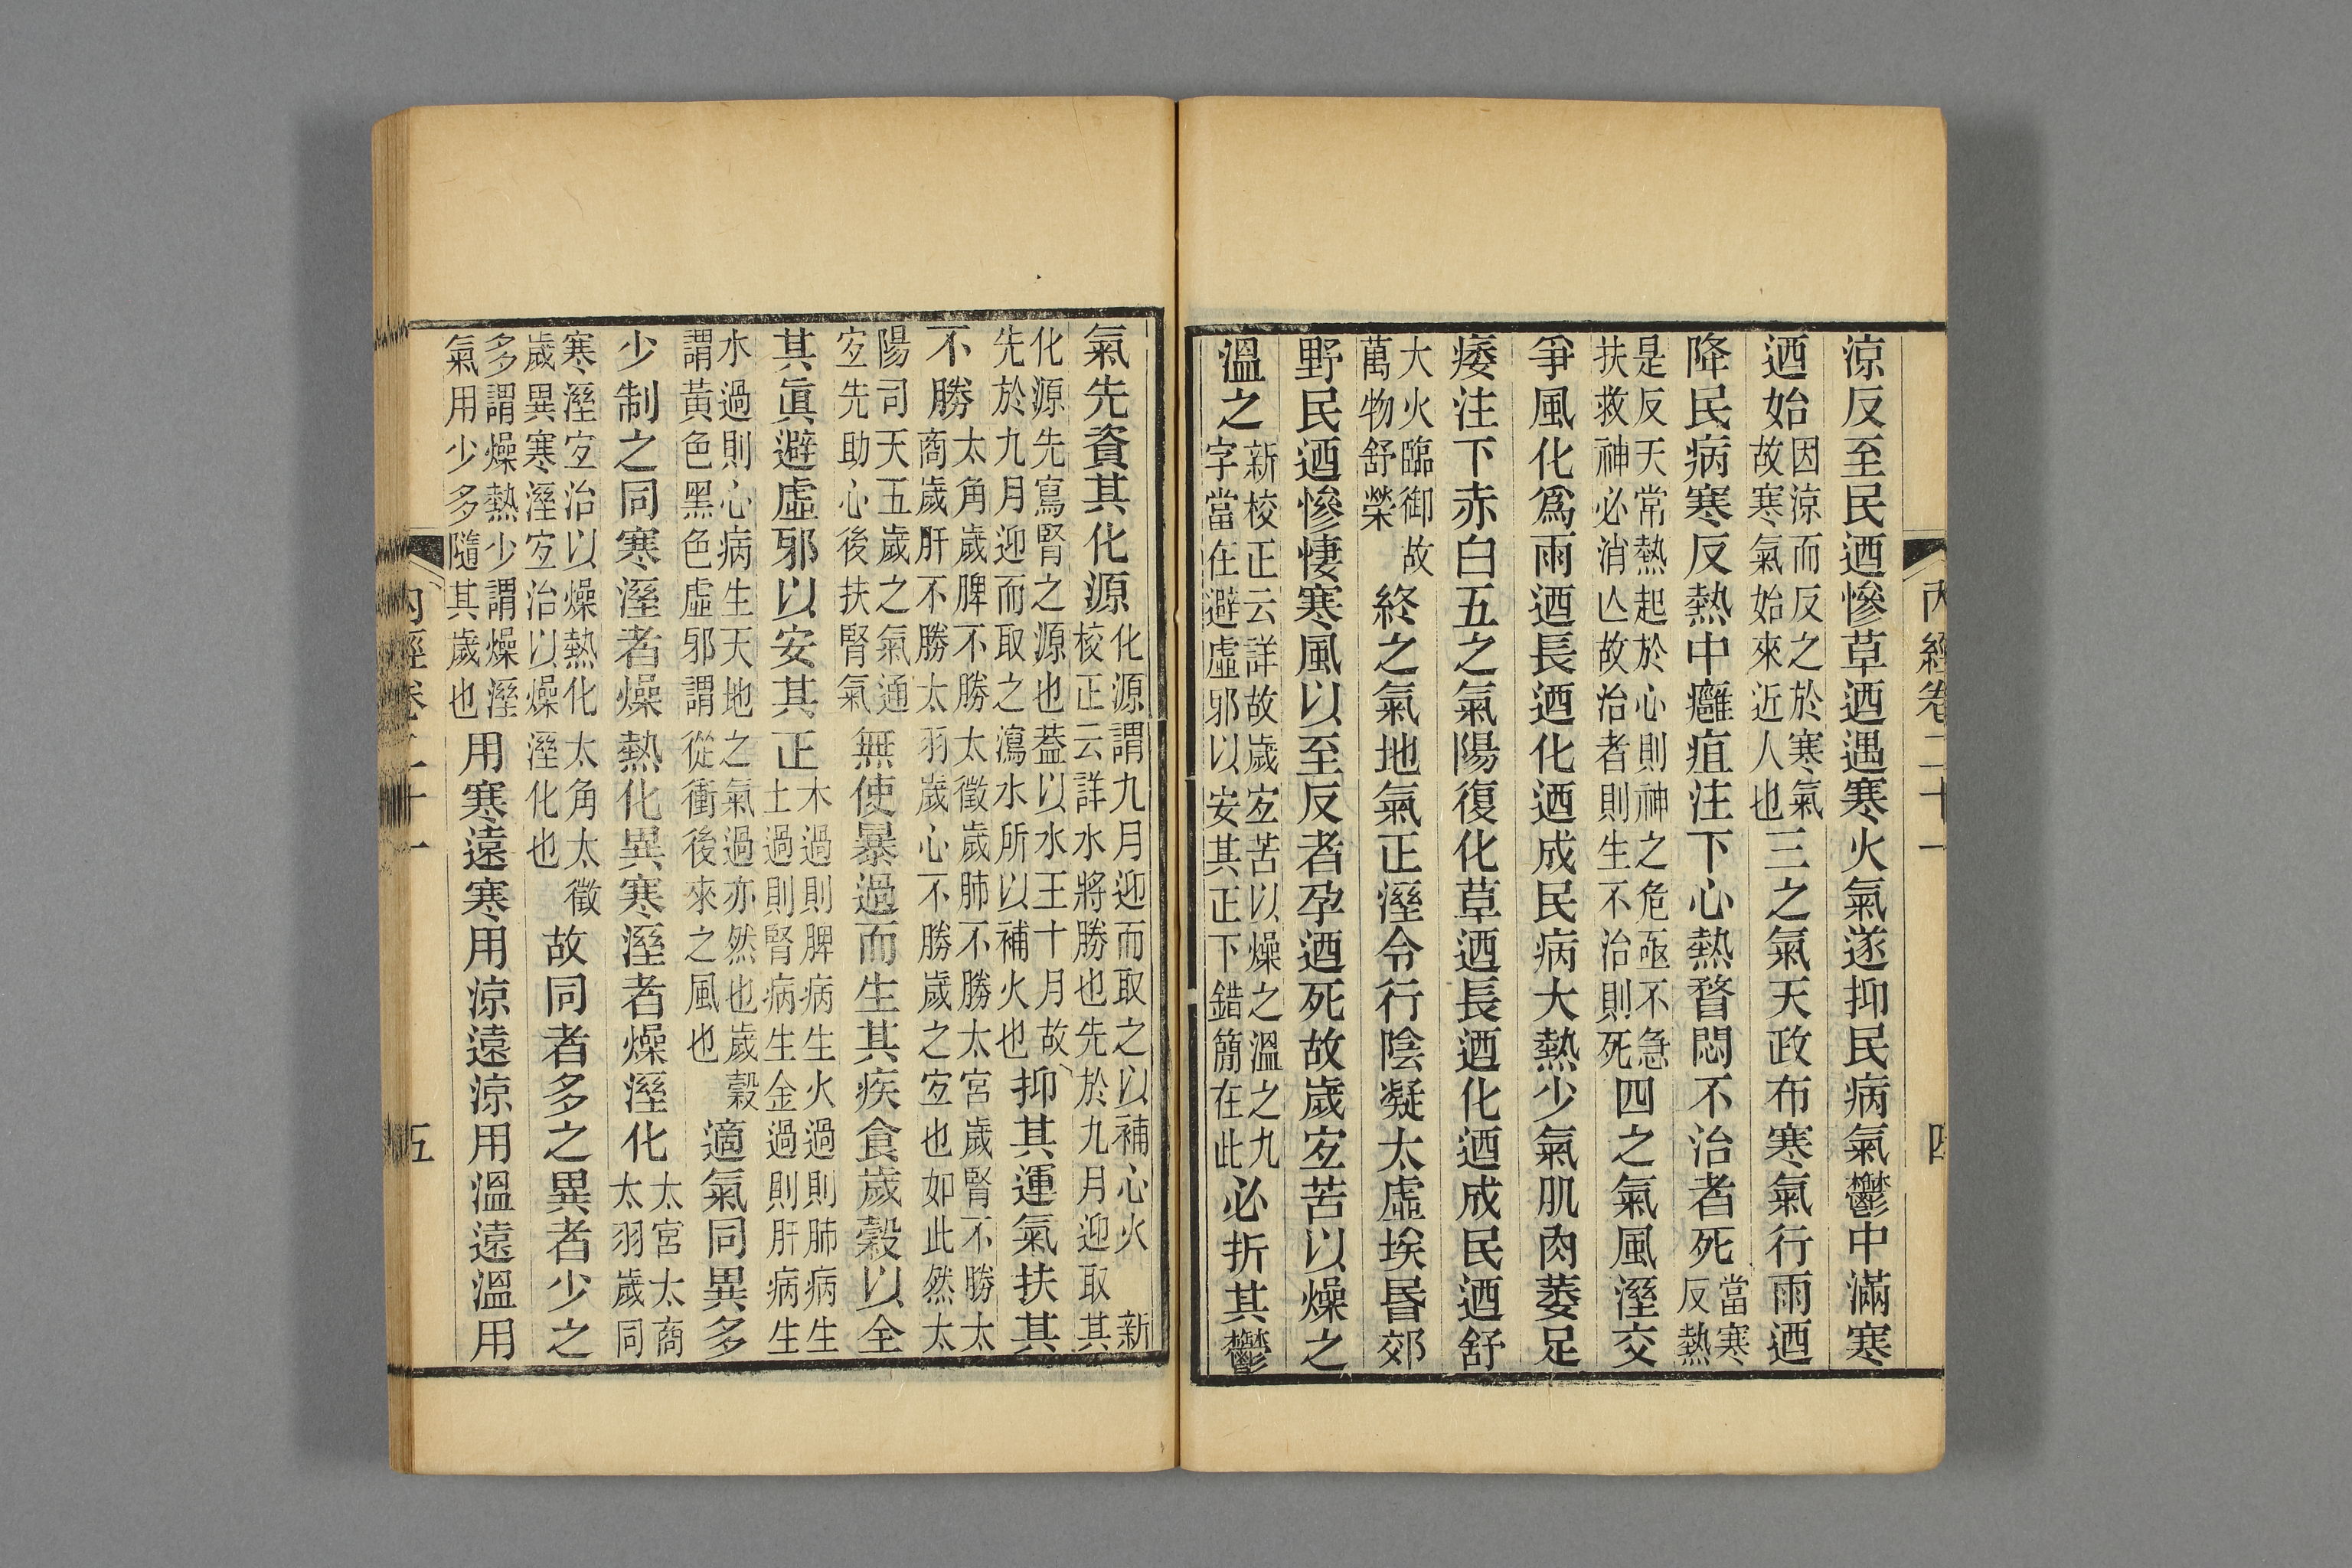 內經卷二十一 四
涼反至民迺慘草迺遇寒火氣遂抑民病氣鬱中滿寒
迺始因涼而反之於寒氣故寒氣始來近人也三之氣天政布寒氣行雨迺
降民病寒反熱中癰疽注下心熱瞀悶不治者死當寒反熱
是反天常熱起於心則神之危亟不急扶救神必消亾故治者則生不治則死四之氣風溼交
爭風化爲雨迺長迺化迺成民病大熱少氣肌肉萎足
痿注下赤白五之氣陽復化草迺長迺化迺成民迺舒
大火臨御故萬物舒榮終之氣地氣正溼令行陰凝太虛埃昏郊
野民迺慘悽寒風以至反者孕迺死故歲宐苦以燥之
溫之新校正云詳故歲宐苦以燥之溫之九字當在避虛邪以安其正下錯簡在此必折其鬱
氣先資其化源化源謂九月迎而取之以補心火 新校正云詳水將勝也先於九月迎取其
化源先寫腎之源也葢以水王十月故先於九月迎而取之瀉水所以補火也抑其運氣扶其
不勝太角歲脾不勝太徵歲肺不勝太宮歲腎不勝太商歲肝不勝太羽歲心不勝歲之宐也如此然太
陽司天五歲之氣通宐先助心後扶腎氣無使暴過而生其疾食歲穀以全
其眞避虛邪以安其正木過則脾病生火過則肺病生土過則腎病生金過則肝病生
水過則心病生天地之氣過亦然也歲穀謂黃色黑色虛邪謂從衝後來之風也適氣同異多
少制之同寒溼者燥熱化異寒溼者燥溼化太宮太商太羽歲同
寒溼宐治以燥熱化太角太徵歲異寒溼宐治以燥溼化也故同者多之異者少之
多謂燥熱少謂燥溼氣用少多隨其歲也用寒遠寒用涼遠涼用溫遠溫用
內經卷二十一 五